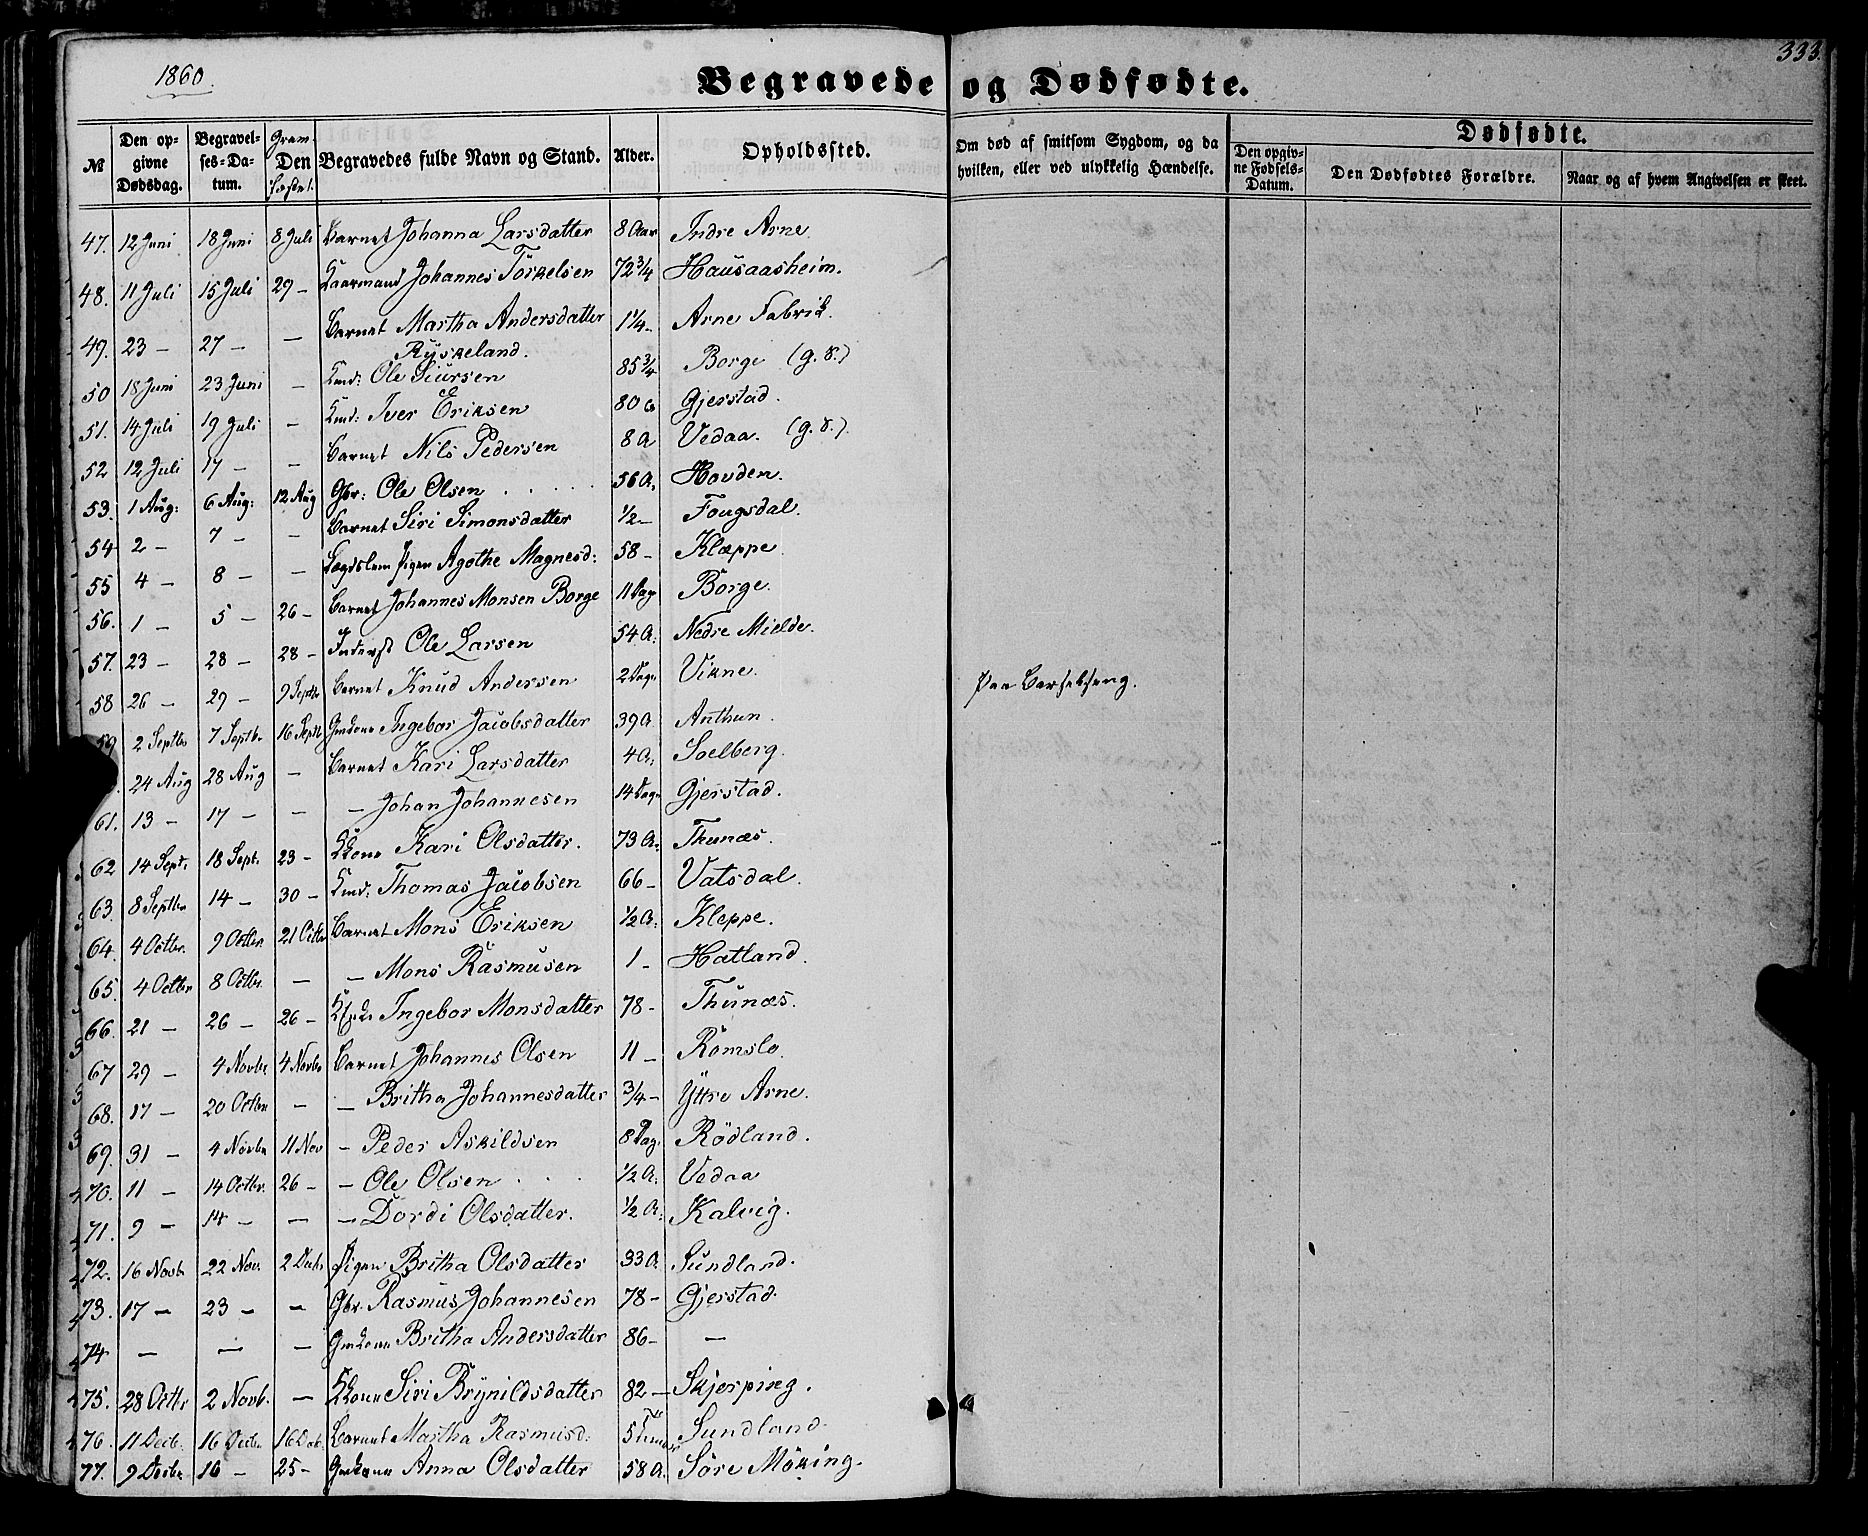 1860.
333.
Begravede og Dødfødte.
№ Den opgivne Dødsdag. Begravelses-Datum. Den Begravedes fulde Navn og Stand. Alder. Opholdssted. Om død af smitsom Sygdom, og da hvilken, eller ved ulykkelig Hændelse. Dødfødte. Den opgivne Fødsels-Datum. Den Dødfødtes Forældre. Naar og af hvem Angivelsen er skeet.
47. 12 Juni 18 Juni 8 Juli Barnet Johanna Larsdatter 8 Aar Indre Arne.
48. 11 Juli 15 Juli 29 – Kaarmand Johannes Torkelsen 72 3/4 Hausaasheim.
49. 23 – 27 – – Barnet Martha Andersdatter Ryskeland. 1 1/4 – Arne Fabrik.
50 18 Juni 23 Juni – Kmd: Ole Siursen 85 3/4 Borge (g. S.)
51. 14 Juli 19 Juli – Kmd: Iver Eriksen 80 a Gjerstad.
52 12 Juli 17 – – Barnet Nils Pedersen 8 A Vedaa. (g. S.)
53. 1 Aug: 6 Aug: 12 Aug Gbr: Ole Olsen 56 A. Hovden.
54 2 – 7 – – Barnet Siri Simonsdatter 1/2 – Fougsdal.
55 4 – 8 – – Lægdslem Pigen Agothe Magnesd: 58 – Klæppe.
56. 1 – 5 – 26 – Barnet Johannes Monsen Borge 11 Dag Borge.
57. 23 – 28 – 28 – Inderst Ole Larsen 54 A: Nedre Mielde.
58 26 – 29 – 9 Septb Barnet Knud Andersen 2 Dage Vikne.
59 2 Septbr 7 Septb. 16 Septb Gmdkone Ingebor Jacobsdatter 39 A Anthun. Paa Barselseng.
24 Aug 28 Aug – Barnet Kari Larsdatter 4 A: Soelberg.
61. 13 – 17 – – – Johan Johannesen 14 Dage Gjerstad.
62 14 Sept. 18 Sept. 23 – Kkone Kari Olsdatter. 73 A: Thunæs.
63. 8 Septbr 14 – 30 – Kmd: Thomas Jacobsen 66 – Vatsdal.
64. 4 Octbr. 9 Octbr. 21 Octbr Barnet Mons Eriksen 1/2 A: Kleppe.
65. 4 Octbr 8 Octbr. – – Mons Rasmusen 1 – Hatland.
66. 21 – 26 – 26 – Ingebor Monsdatter 78 – Thunæs.
67 29 – 4 Novbr 4 Novbr Barnet Johannes Olsen 11 – Romslo.
68. 17 – 20 Octbr – – Britha Johannesdatter 3/4 – Yttre Arne.
69. 31 – 4 Novbr 11 Nov – Peder Askildsen 8 Dag. Rödland.
70. 11 – 14 Octbr. 26 – – Ole Olsen 1/2 A. Vedaa
71. 9 – 14 – – – Dordi Olsdatter. 1/2 A: Kalvig.
72. 16 Novb 22 Nov. 2 Decbr Pigen Britha Olsdatter 33 A Sundland.
73. 17 – 23 – – Gbr. Rasmus Johannesen 78 – Gjerstad.
74 – – – Gmkone Britha Andersdatter 86 – –
75. 28 Octbr 2 Novb. – Kkone Siri Brynildsdatter 82 – Skjerping.
76. 11 Decb. 16 Decbr 16 Decb. Barnet Martha Rasmusd: 5 Sundland.
77. 9 Decbr 16 – 25 – Gmkone Anna Olsdatter 58 A. Söre Möking.